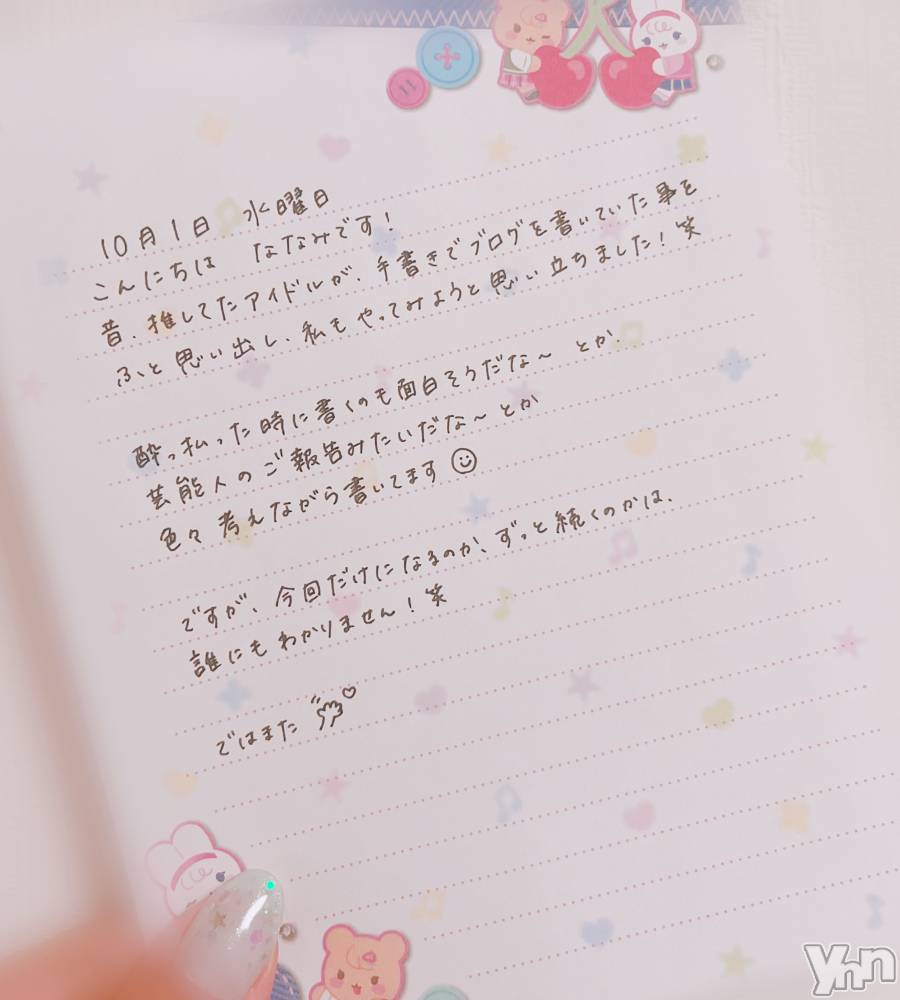 10月1日 水曜日
こんにちは ななみです!
昔、推してたアイドルが、手書きでブログを書いていた事を
ふと思い出し、私もやってみようと思い立ちました!笑
酔っ払った時に書くのも面白そうだな〜 とか、
芸能人のご報告みたいだな〜とか
色々考えながら書いてます
ですが、今回だけになるのか、ずっと続くのかは、
誰にもわかりません!笑
ではまた
Yhn